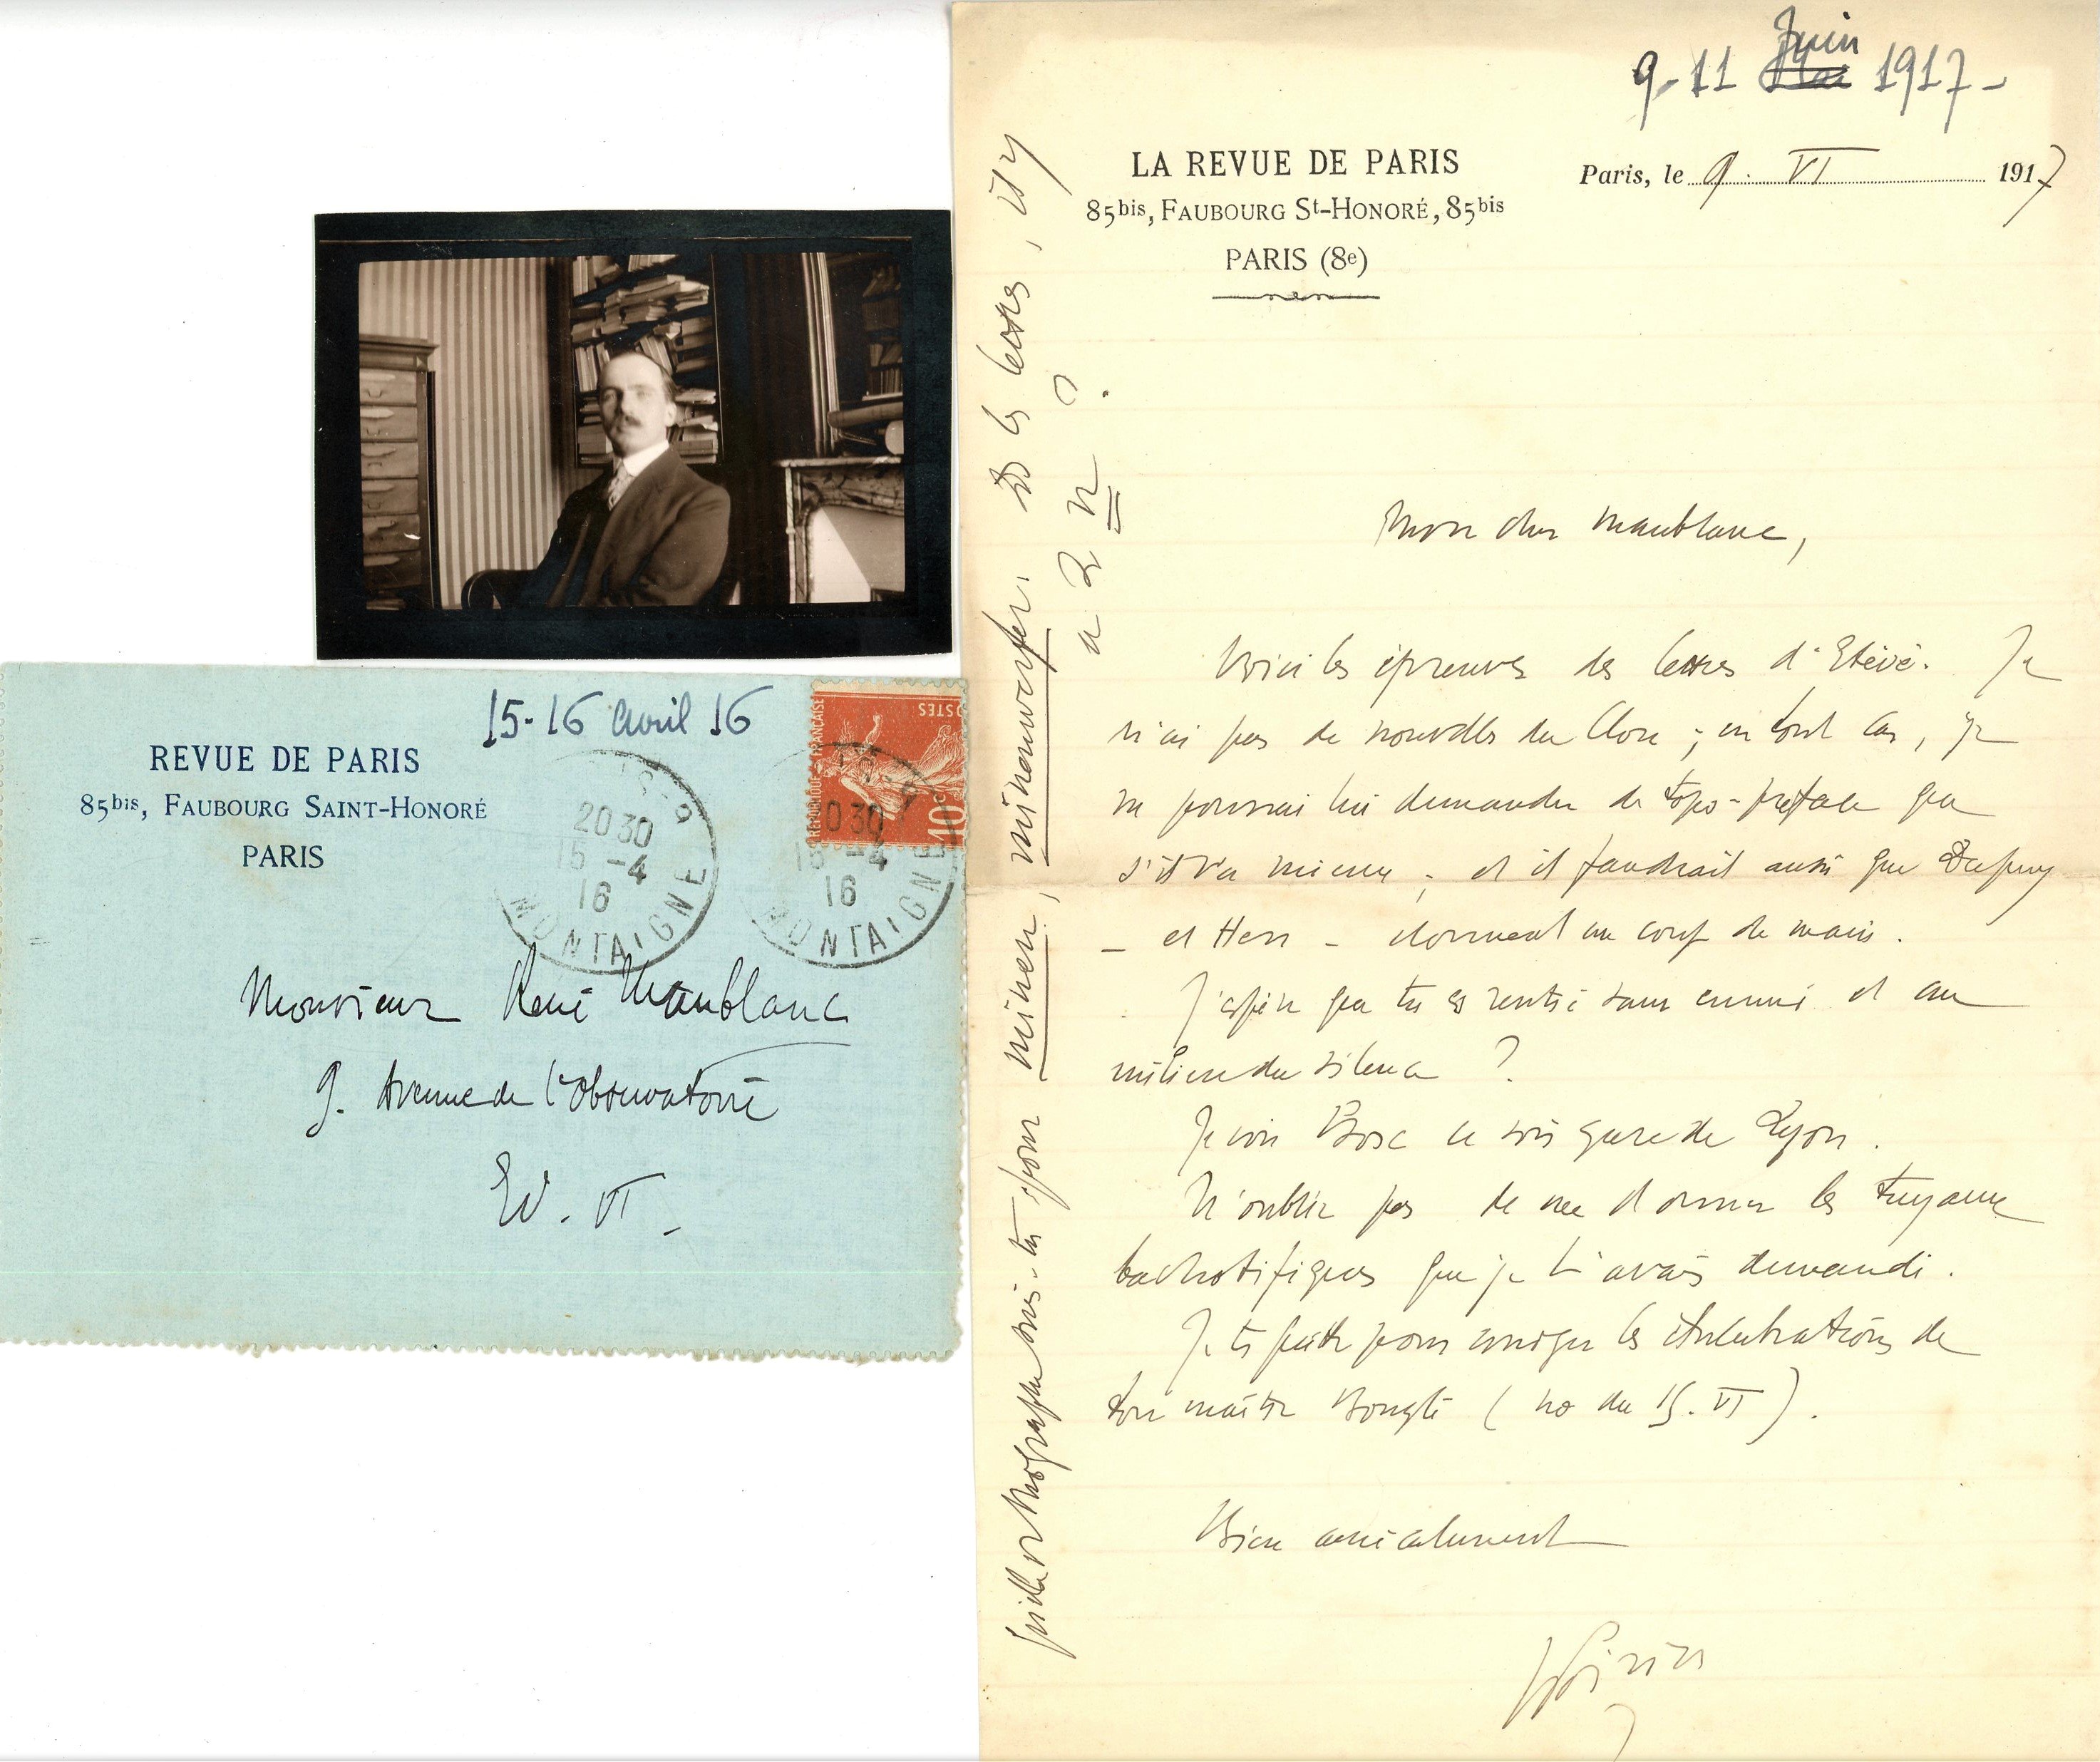 15-16 avril 16
REVUE DE PARIS
85bis, FAUBOURG SAINT-HONORÉ
PARIS
POSTES
REPUBLIQUE FRANÇAISE
10c
20 30
15 -4
16
MONTAIGNE
0 30
15 -4
16
MONTAIGNE
Monsieur René Maublanc
9. Avenue de l'Observatoire
EV. VI
9-11 Juin Mai 1917-
LA REVUE DE PARIS
85bis, FAUBOURG St-HONORÉ, 85bis
PARIS (8e)
Paris, le 9. VI 1917
Mon cher Maublanc,
Voici les épreuves des lettres d'Etévé. Je
n'ai pas de nouvelles du ; en tout cas, je
ne pourrai lui demander de topo-préface que
s'il va mieux ; et il faudrait aussi que Dupuy
- et Herr - donnent un coup de main.
J'espère que tu es rentré sans ennui et au
milieu du silence ?
Je vois Bosc ce soir gare de Lyon.
N'oublie pas de me donner les tuyaux
bachotifiques que je t'avais demandé.
Je te quitte pour corriger les élucubrations de
ton maître Bouglé (no du 15. VI).
Bien amicalement
Quelle orthographe suis-tu pour minen, minenwerfer. Ds les lettres, il y
a 2 n ?